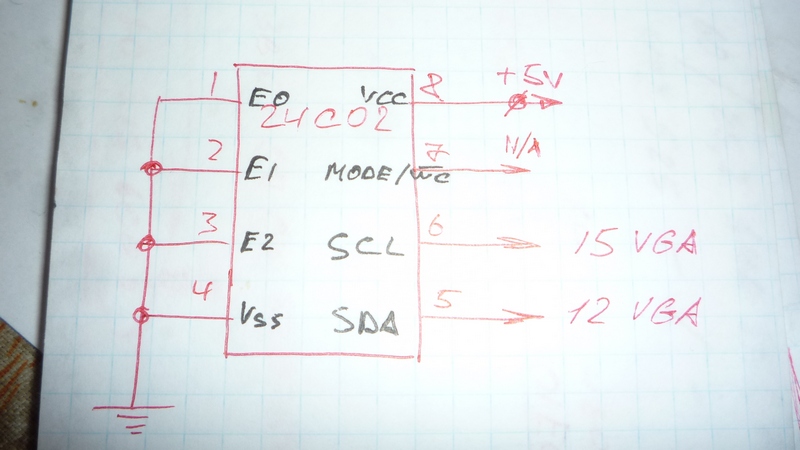 1 E0 VCC 8 +5V
24C02
2 E1 MODE/W̅C̅ 7 N/A
3 E2 SCL 6 15 VGA
4 Vss SDA 5 12 VGA